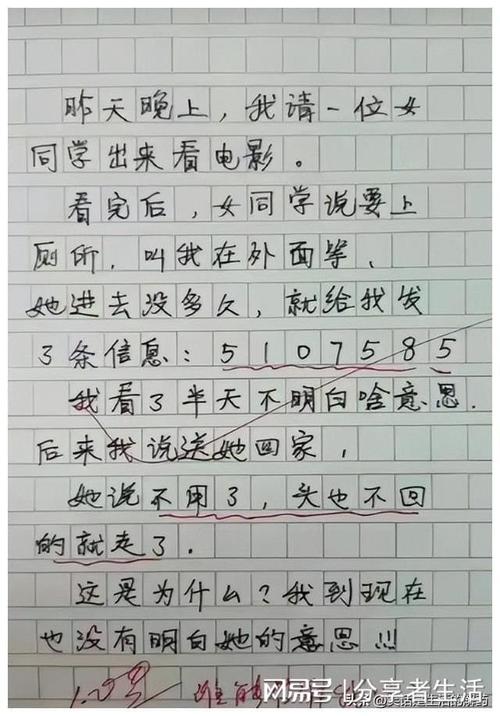 昨天晚上，我请一位女
同学出来看电影。
看完后，女同学说要上
厕所，叫我在外面等、
她进去没多久，就给我发
了条信息：5107585
我看了半天不明白啥意思.
后来我说送她回家，
她说不用了，头也不回
的就走了.
这是为什么？我到现在
也没有明白她的意思!!!
谁能
网易号|分享者生活
头条@笑话是生活的解药